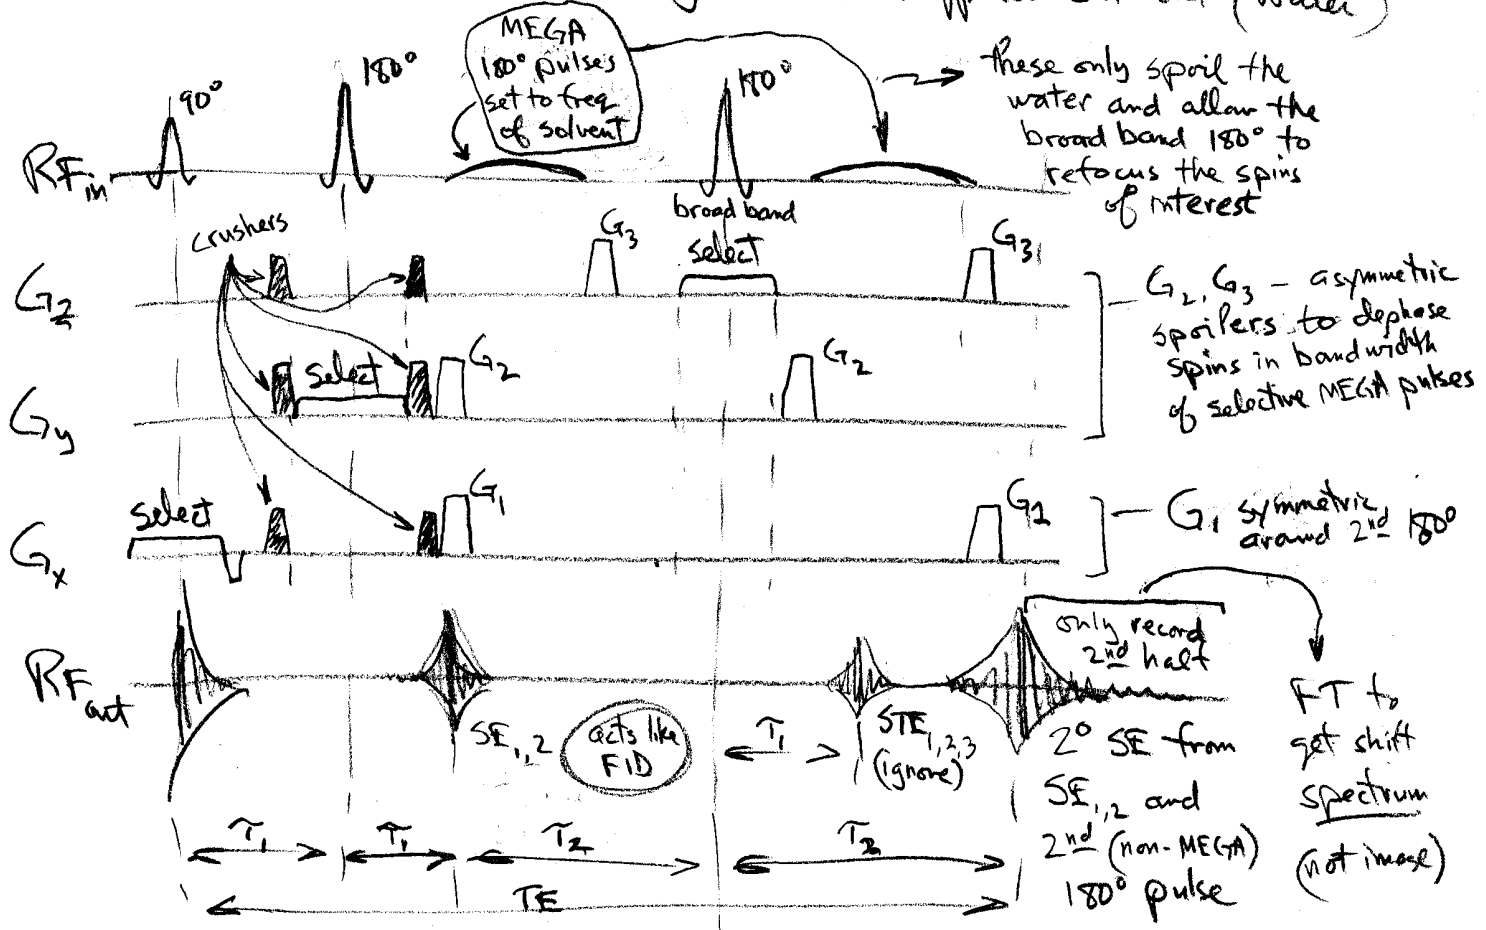 (water)
MEGA
180° pulses
set to freq
of solvent
90°
180°
180°
these only spoil the
water and allow the
broad band 180° to
refocus the spins
of interest
RFin
broad band
crushers
G3
select
G3
Gz
G2, G3 – asymmetric
spoilers to dephase
spins in bandwidth
of selective MEGA pulses
select
G2
G2
Gy
select
G1
G1
Gx
G1 symmetric
around 2nd 180°
only record
2nd half
RFout
SE1,2
acts like
FID
τ1
STE1,2,3
(ignore)
2° SE from
SE1,2 and
2nd (non-MEGA)
180° pulse
FT to
get shift
spectrum
(not image)
τ1
τ1
τ2
τ2
TE